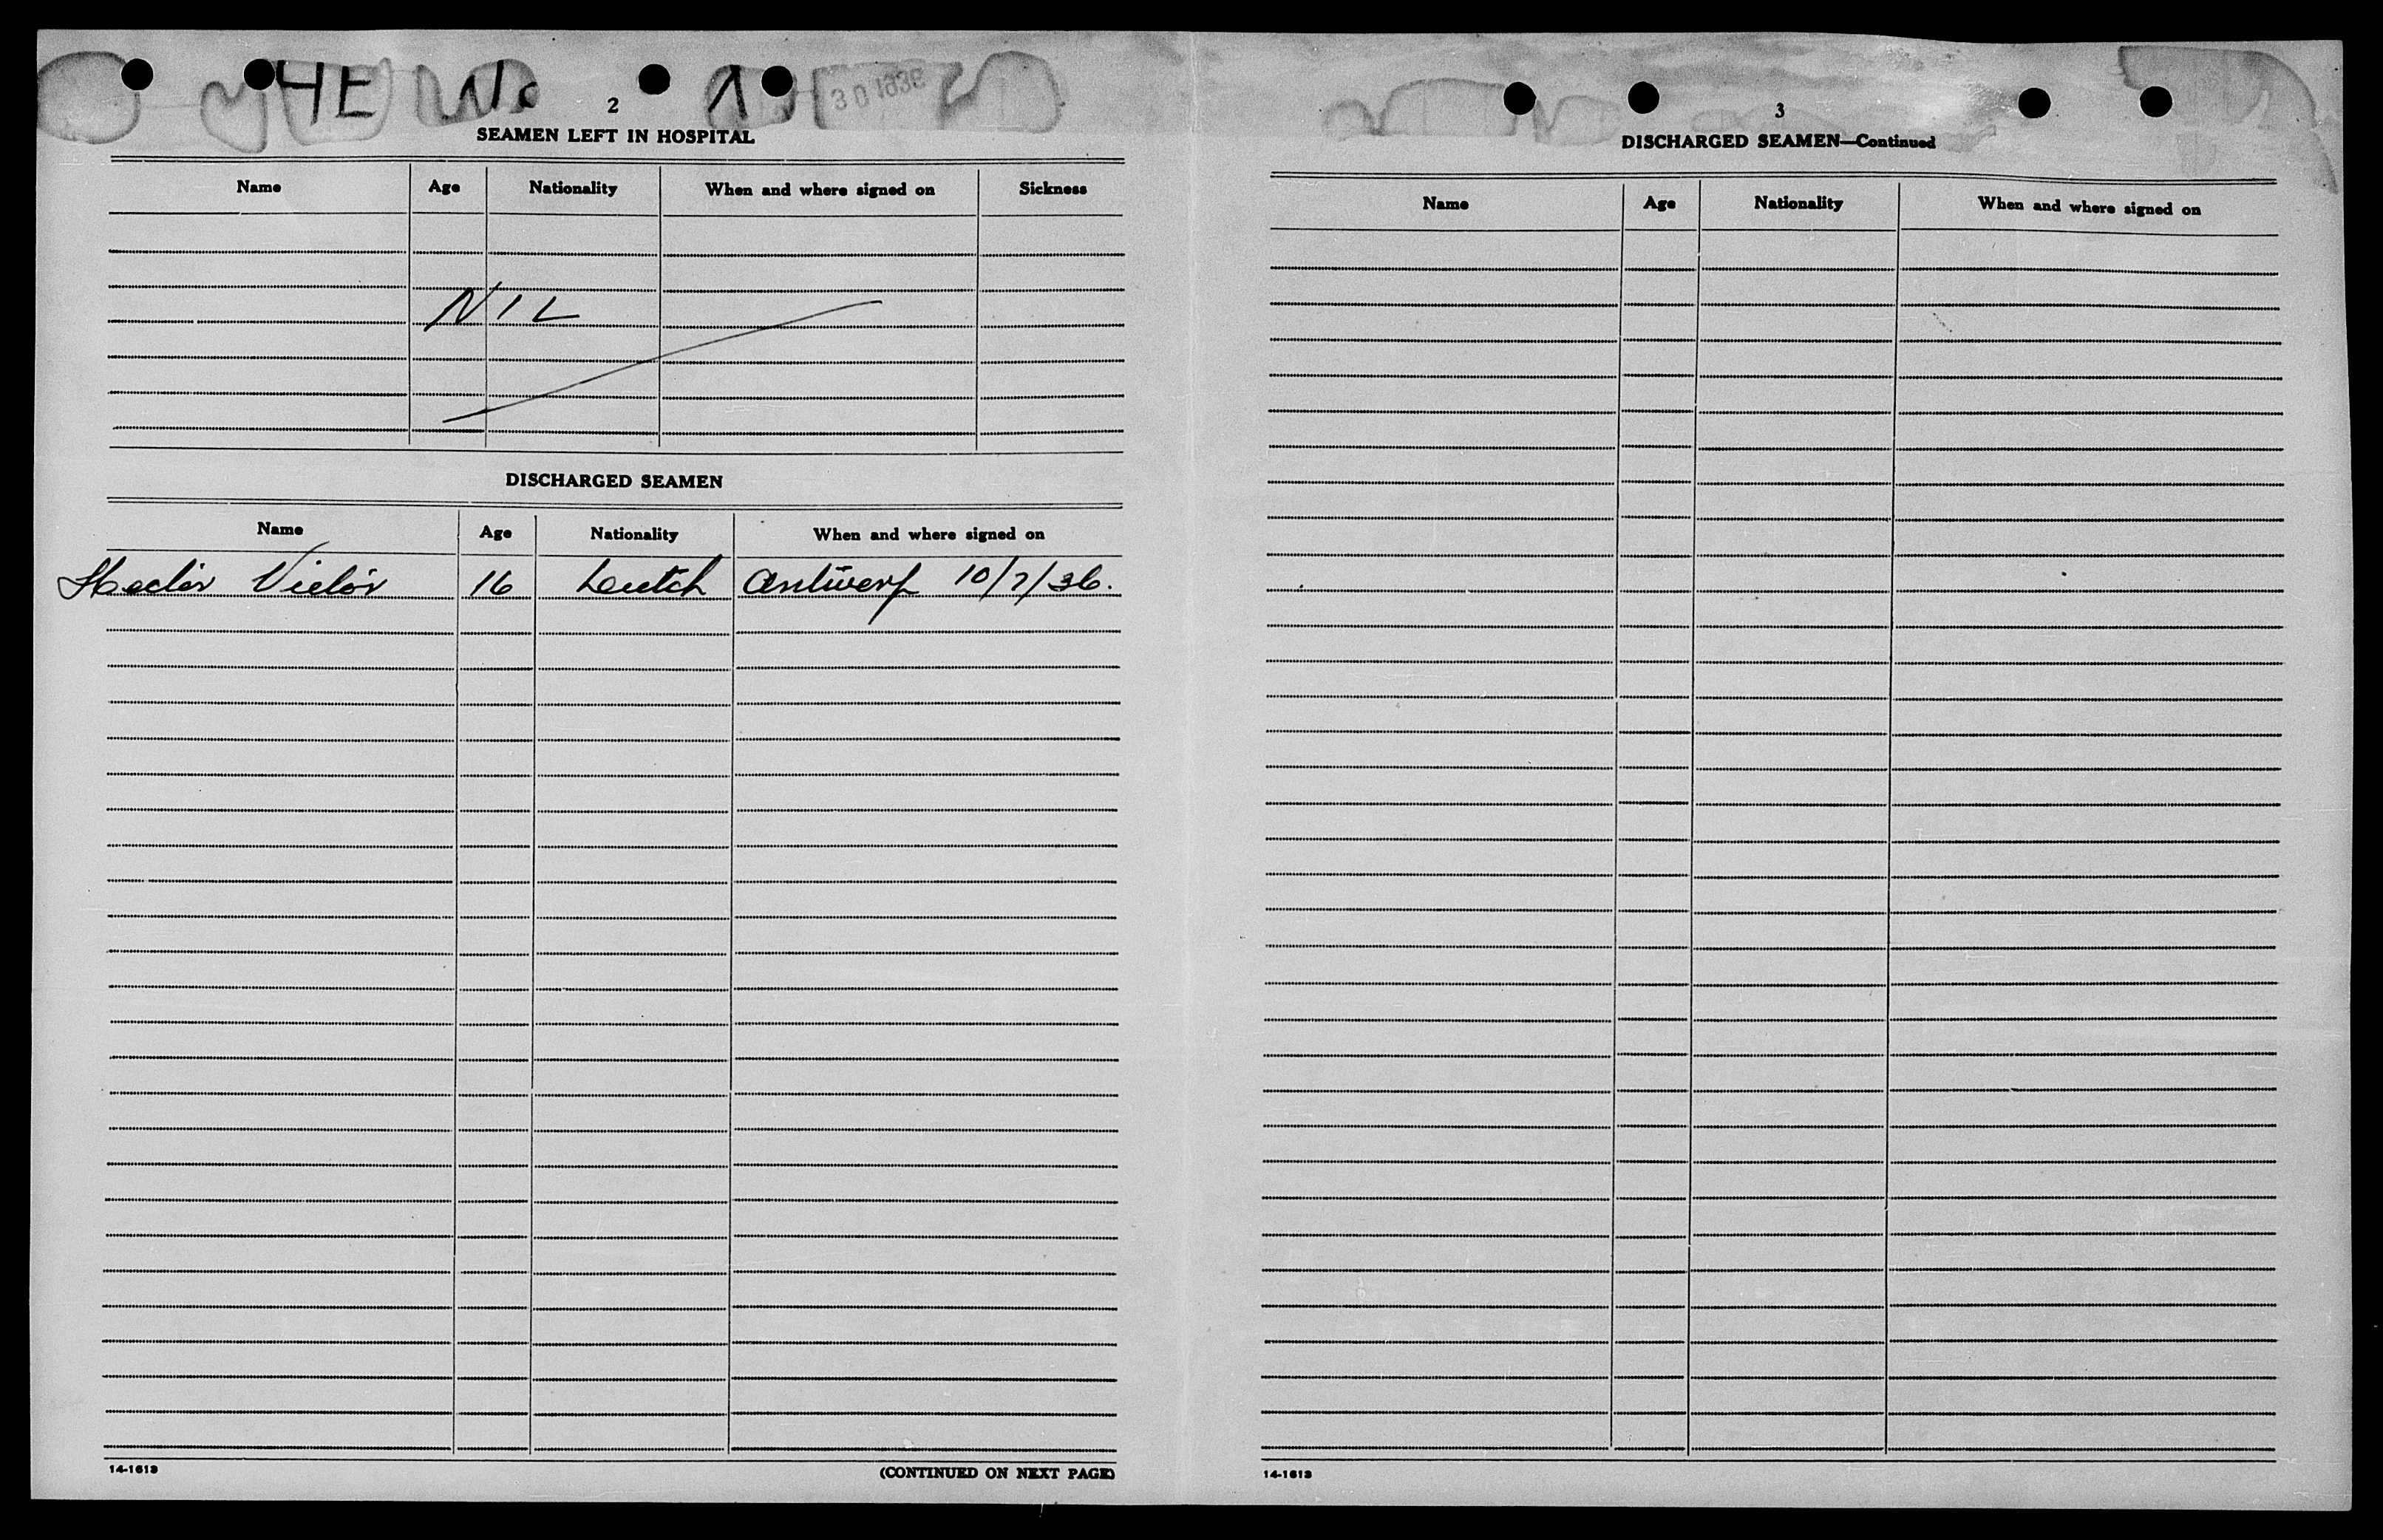 4E No 1
30 1936
2
SEAMEN LEFT IN HOSPITAL
Name Age Nationality When and where signed on Sickness
NIL
DISCHARGED SEAMEN
Name Age Nationality When and where signed on
Hector Victor 16 Deutch Antwerp 10/7/36.
14-1613 (CONTINUED ON NEXT PAGE)
3
DISCHARGED SEAMEN—Continued
Name Age Nationality When and where signed on
14-1613